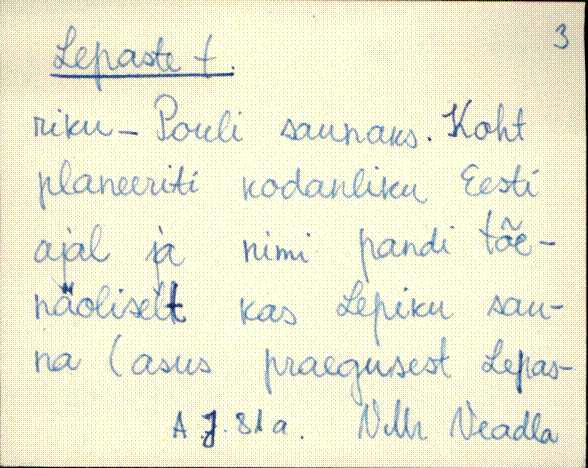 3
Lepaste t.
riku- Pouli saunaks. Koht
planeeriti kodanliku Eesti
ajal ja nimi pandi tõe-
näoliselt kas Lepiku sau-
na (asus praegusest Lepas-
A.J. 81a. Veadla